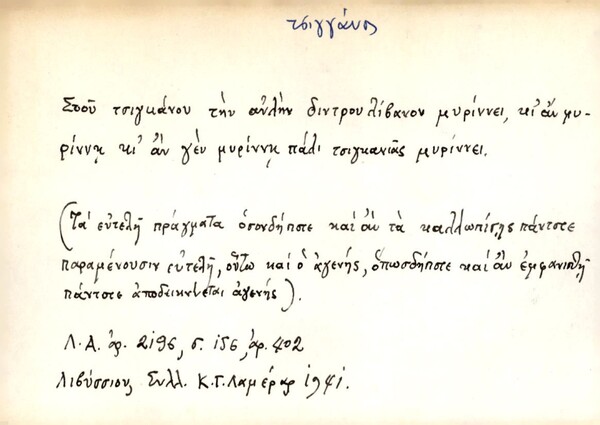 τσιγγάνος
Σποῦ τσιγκάνου τὴν αὐλὴν διντρουλίβανον μυρίννει, κι' ἂν μυ-
ρίννῃ κι' ἂν γὲν μυρίννῃ πάλι τσιγκανιᾶς μυρίννει.
(Τὰ εὐτελῆ πράγματα ὁσονδήποτε καὶ ἂν τὰ καλλωπίσῃς πάντοτε
παραμένουσιν εὐτελῆ, οὕτω καὶ ὁ ἀγενής, ὁπωσδήποτε καὶ ἂν ἐμφανισθῇ
πάντοτε ἀποδεικνύεται ἀγενής).
Λ.Α. ἀρ. 2196, σ. 156, ἀρ. 402
Λιβύσσιον, Συλλ. Κ.Γ. Λαμέρας 1941.